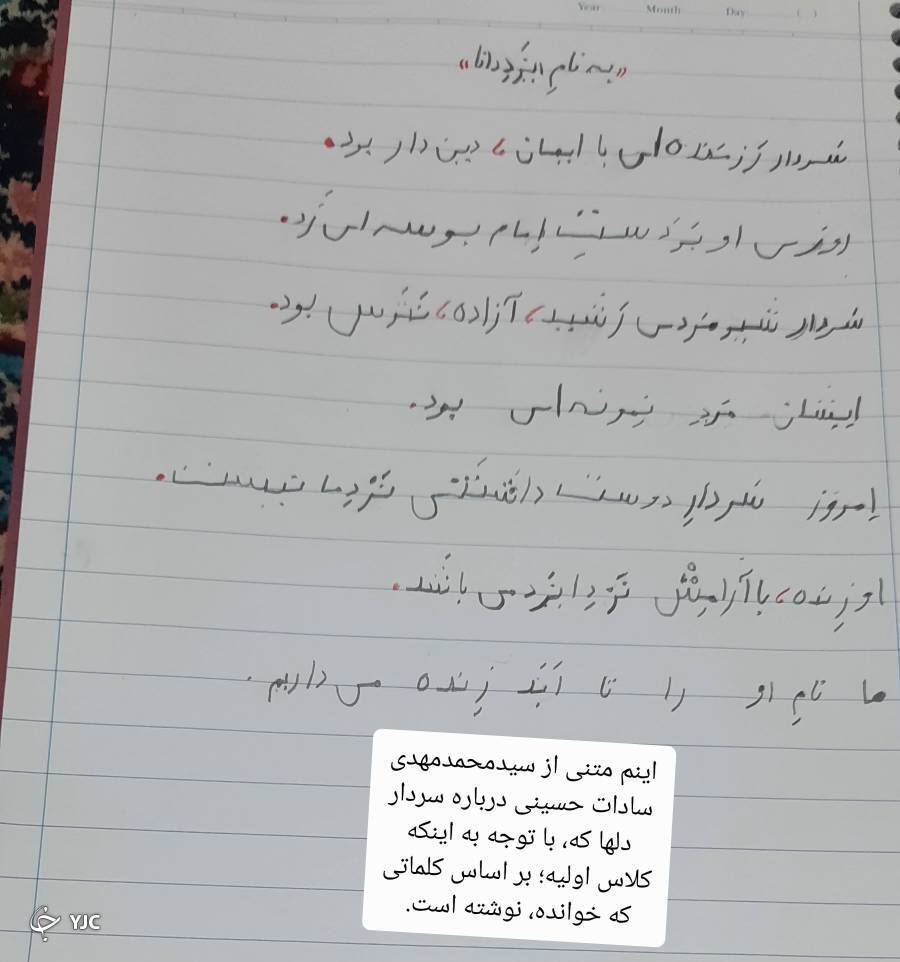 Year Month Day ( )
«به نامِ ایزَدِ دانا»
سَردار رَزمَنده ای با ایمان، دین دار بود.
روزی او بَر دَستِ اِمام بوسه ای زَد.
سَردار شیر مَردی رَشید، آزاده، نَتَرس بود.
ایشان مَردِ نِمونه ای بود.
اِمروز سَردارِ دوست داشتَنی نَزدِ ما نیست.
او زِنده، با آرامِش نَزدِ ایزَد می باشَد.
ما نامِ او را تا اَبَد زِنده می داریم.
اینم متنی از سیدمحمدمهدی
سادات حسینی درباره سردار
دلها که، با توجه به اینکه
کلاس اولیه؛ بر اساس کلماتی
که خوانده، نوشته است.
YJC